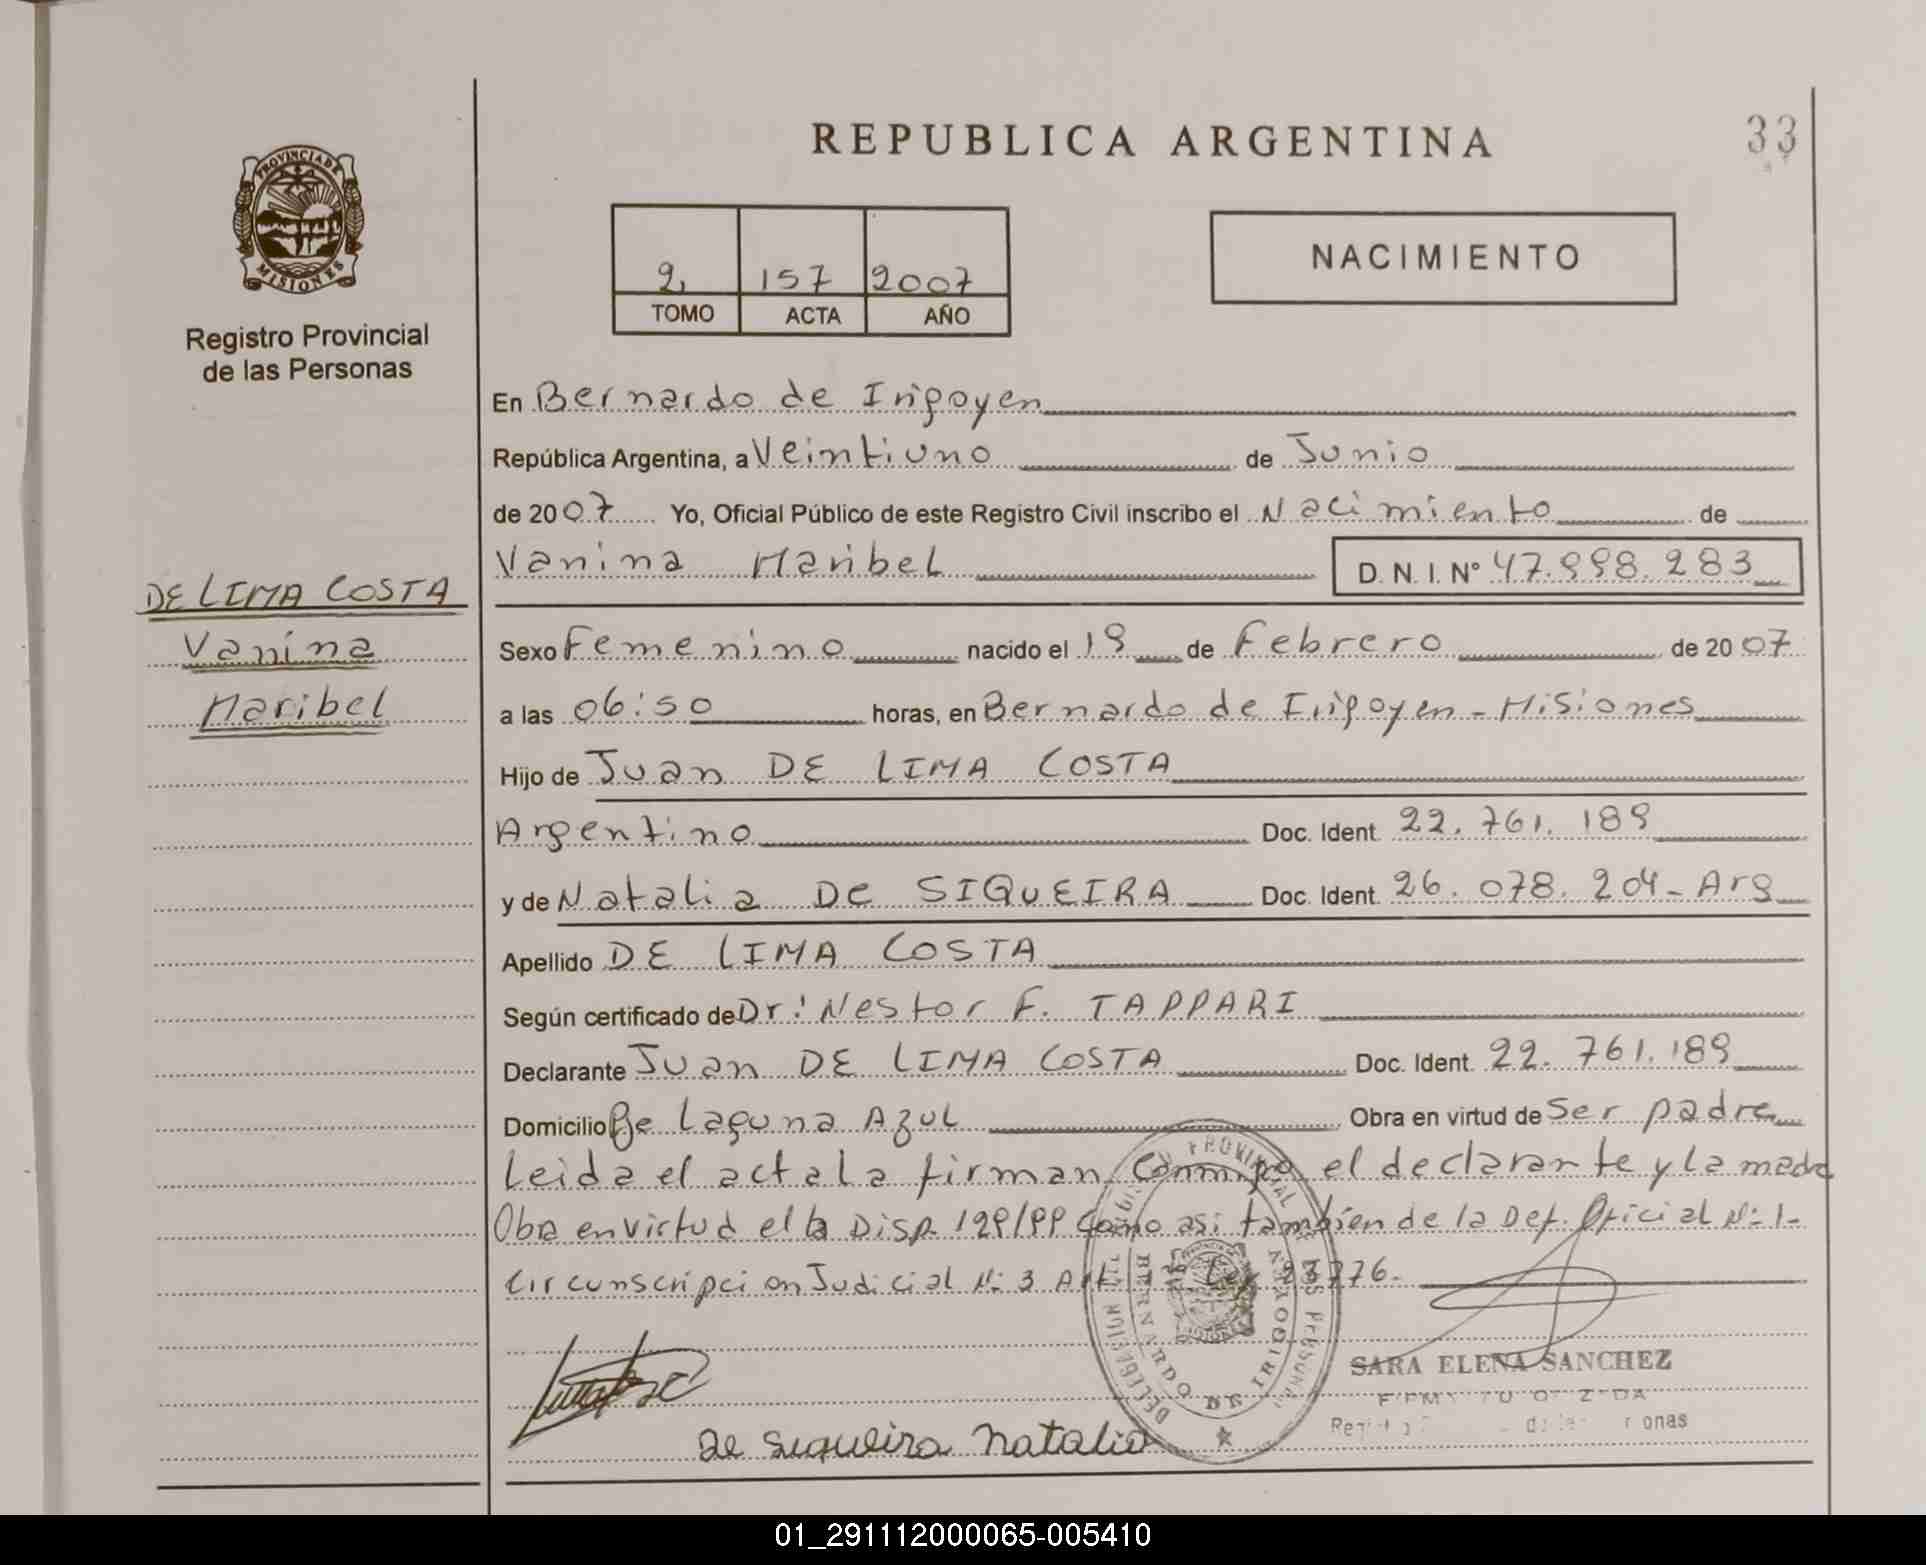 REPUBLICA ARGENTINA
33
PROVINCIA DE
MISIONES
Registro Provincial
de las Personas
2 157 2007
TOMO ACTA AÑO
NACIMIENTO
En Bernardo de Irigoyen
República Argentina, a Veintiuno de Junio
de 2007 Yo, Oficial Público de este Registro Civil inscribo el Nacimiento de
Vanina Maribel D.N.I. Nº 47.998.283
DE LIMA COSTA
Vanina
Maribel
Sexo Femenino nacido el 19 de Febrero de 2007
a las 06:50 horas, en Bernardo de Irigoyen - Misiones
Hijo de Juan DE LIMA COSTA
Argentino Doc. Ident. 22.761.189
y de Natalia De SIQUEIRA Doc. Ident. 26.078.204 - Arg
Apellido DE LIMA COSTA
Según certificado de Dr: Nestor F. TAPPARI
Declarante Juan DE LIMA COSTA Doc. Ident. 22.761.189
Domicilio Laguna Azul Obra en virtud de Ser padre
Leida el acta la firman Conmigo el declarante y la madre
Obra en virtud el la Disp. 129/99 Como asi tambien de la Def. Oficial Nº 1-
Circunscripcion Judicial Nº 3 Art Ley 23776.
DELEGACION BERNARDO DE IRIGOYEN
SARA ELENA SANCHEZ
de Siqueira Natalia
01_291112000065-005410